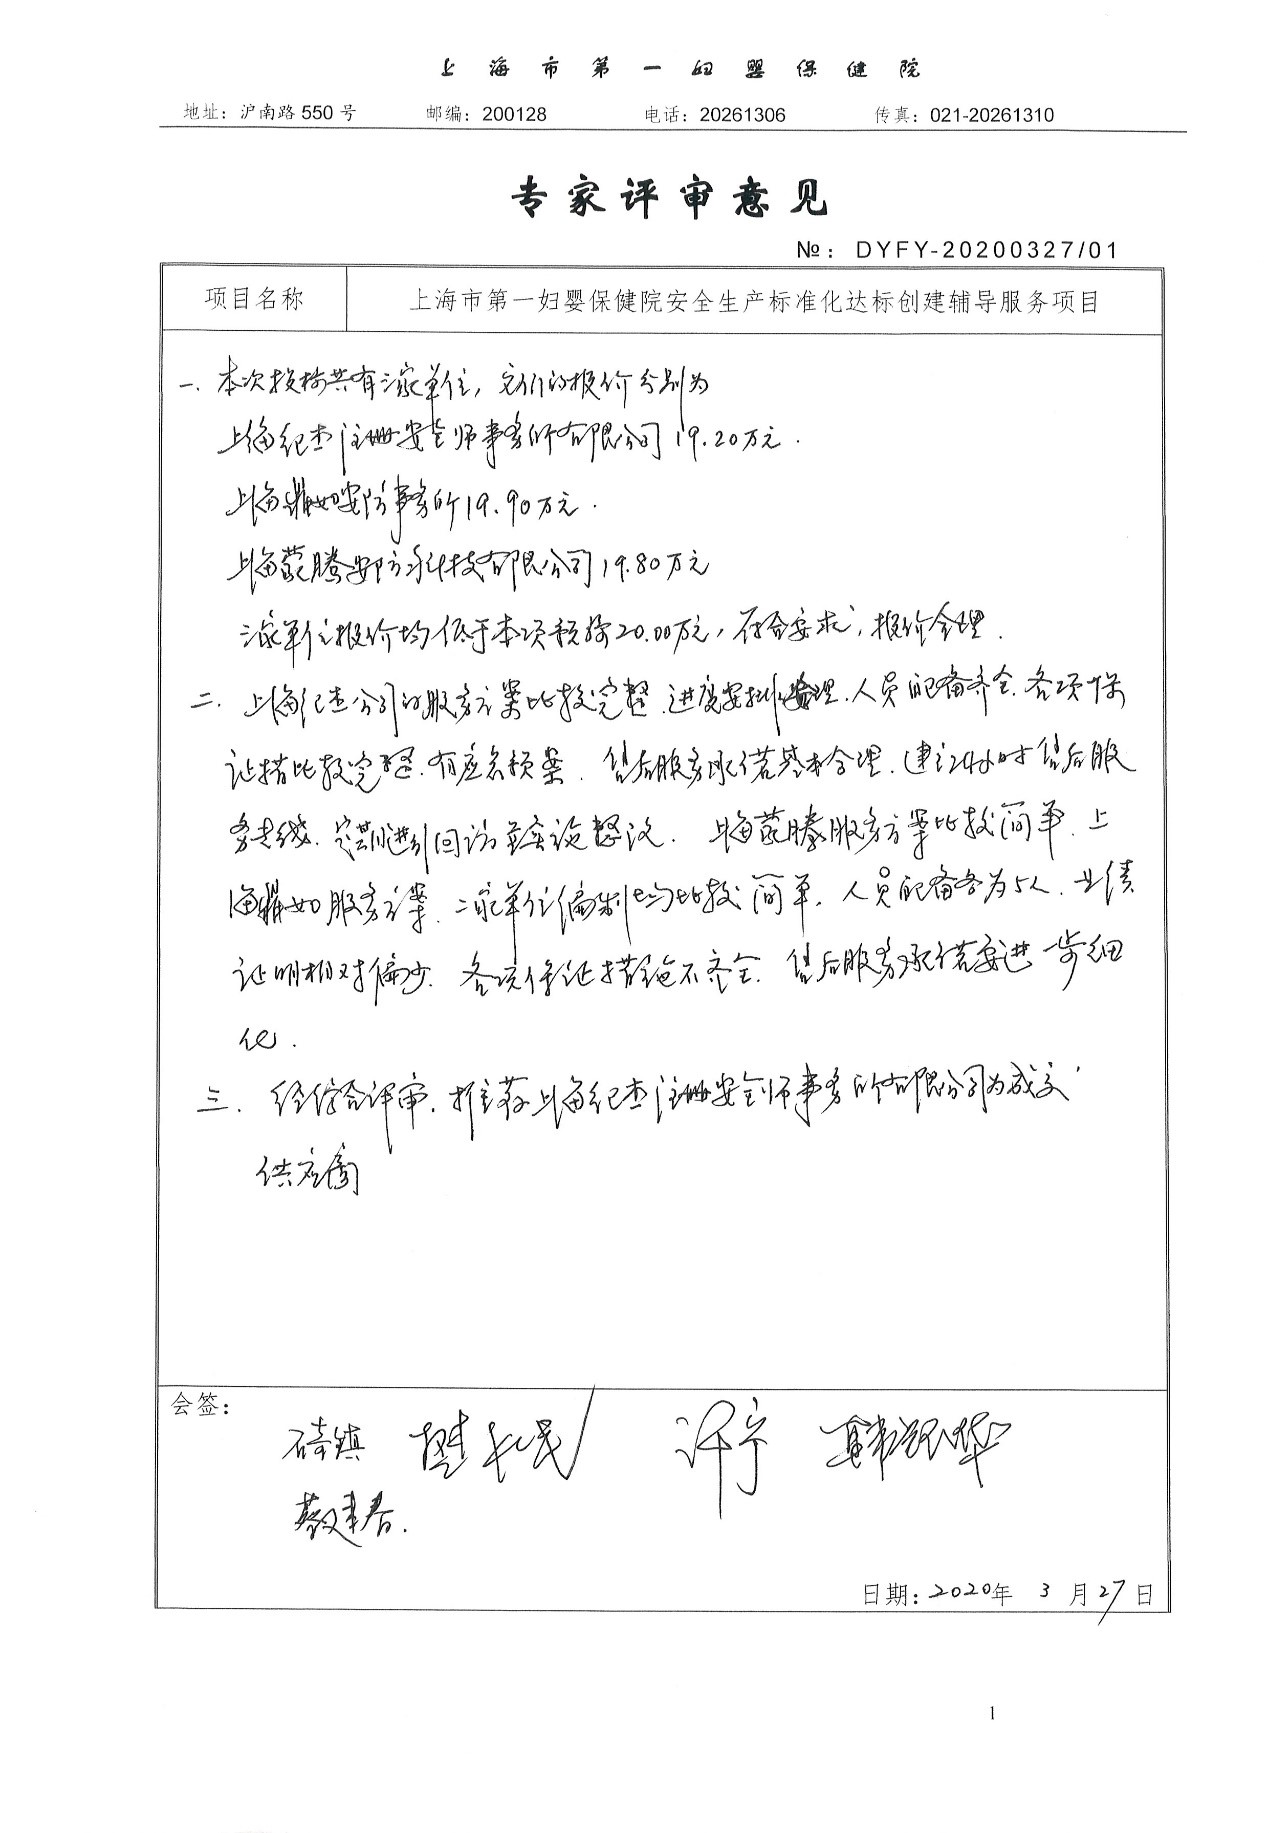 上海市第一妇婴保健院
地址：沪南路 550 号 邮编：200128 电话：20261306 传真：021-20261310
专家评审意见
№：DYFY-20200327/01
项目名称 上海市第一妇婴保健院安全生产标准化达标创建辅导服务项目
一、本次投标共有三家单位，它们的报价分别为
上海纪杰注册安全师事务所有限公司19.20万元．
上海鼎如安防事务所19.90万元．
上海 腾安防科技有限公司19.80万元
三家单位报价均低于本项预算20.00万元，符合要求，报价合理．
二、上海纪杰公司的服务方案比较完整．进度安排合理．人员配备齐全．各项保
证措比较完整．有应急预案．售后服务承诺基本合理．建立24小时售后服
务专线．定期进行回访 落实设整改．上海 腾服务方案比较简单．上
海鼎如服务方案．二家单位编制均比较简单．人员配备各为5人．业绩
证明相对偏少．各项保证措施不齐全．售后服务承诺要进一步细
化．
三．经综合评审．推荐上海纪杰注册安全师事务所有限公司为成交
供应商
会签：
许宁
蔡建春．
日期：2020年 3 月 27 日
1